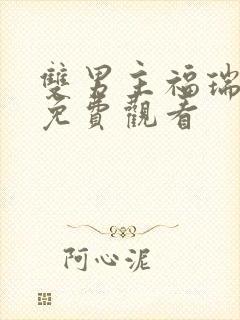 雙男主福瑞
免費觀看
阿心泥